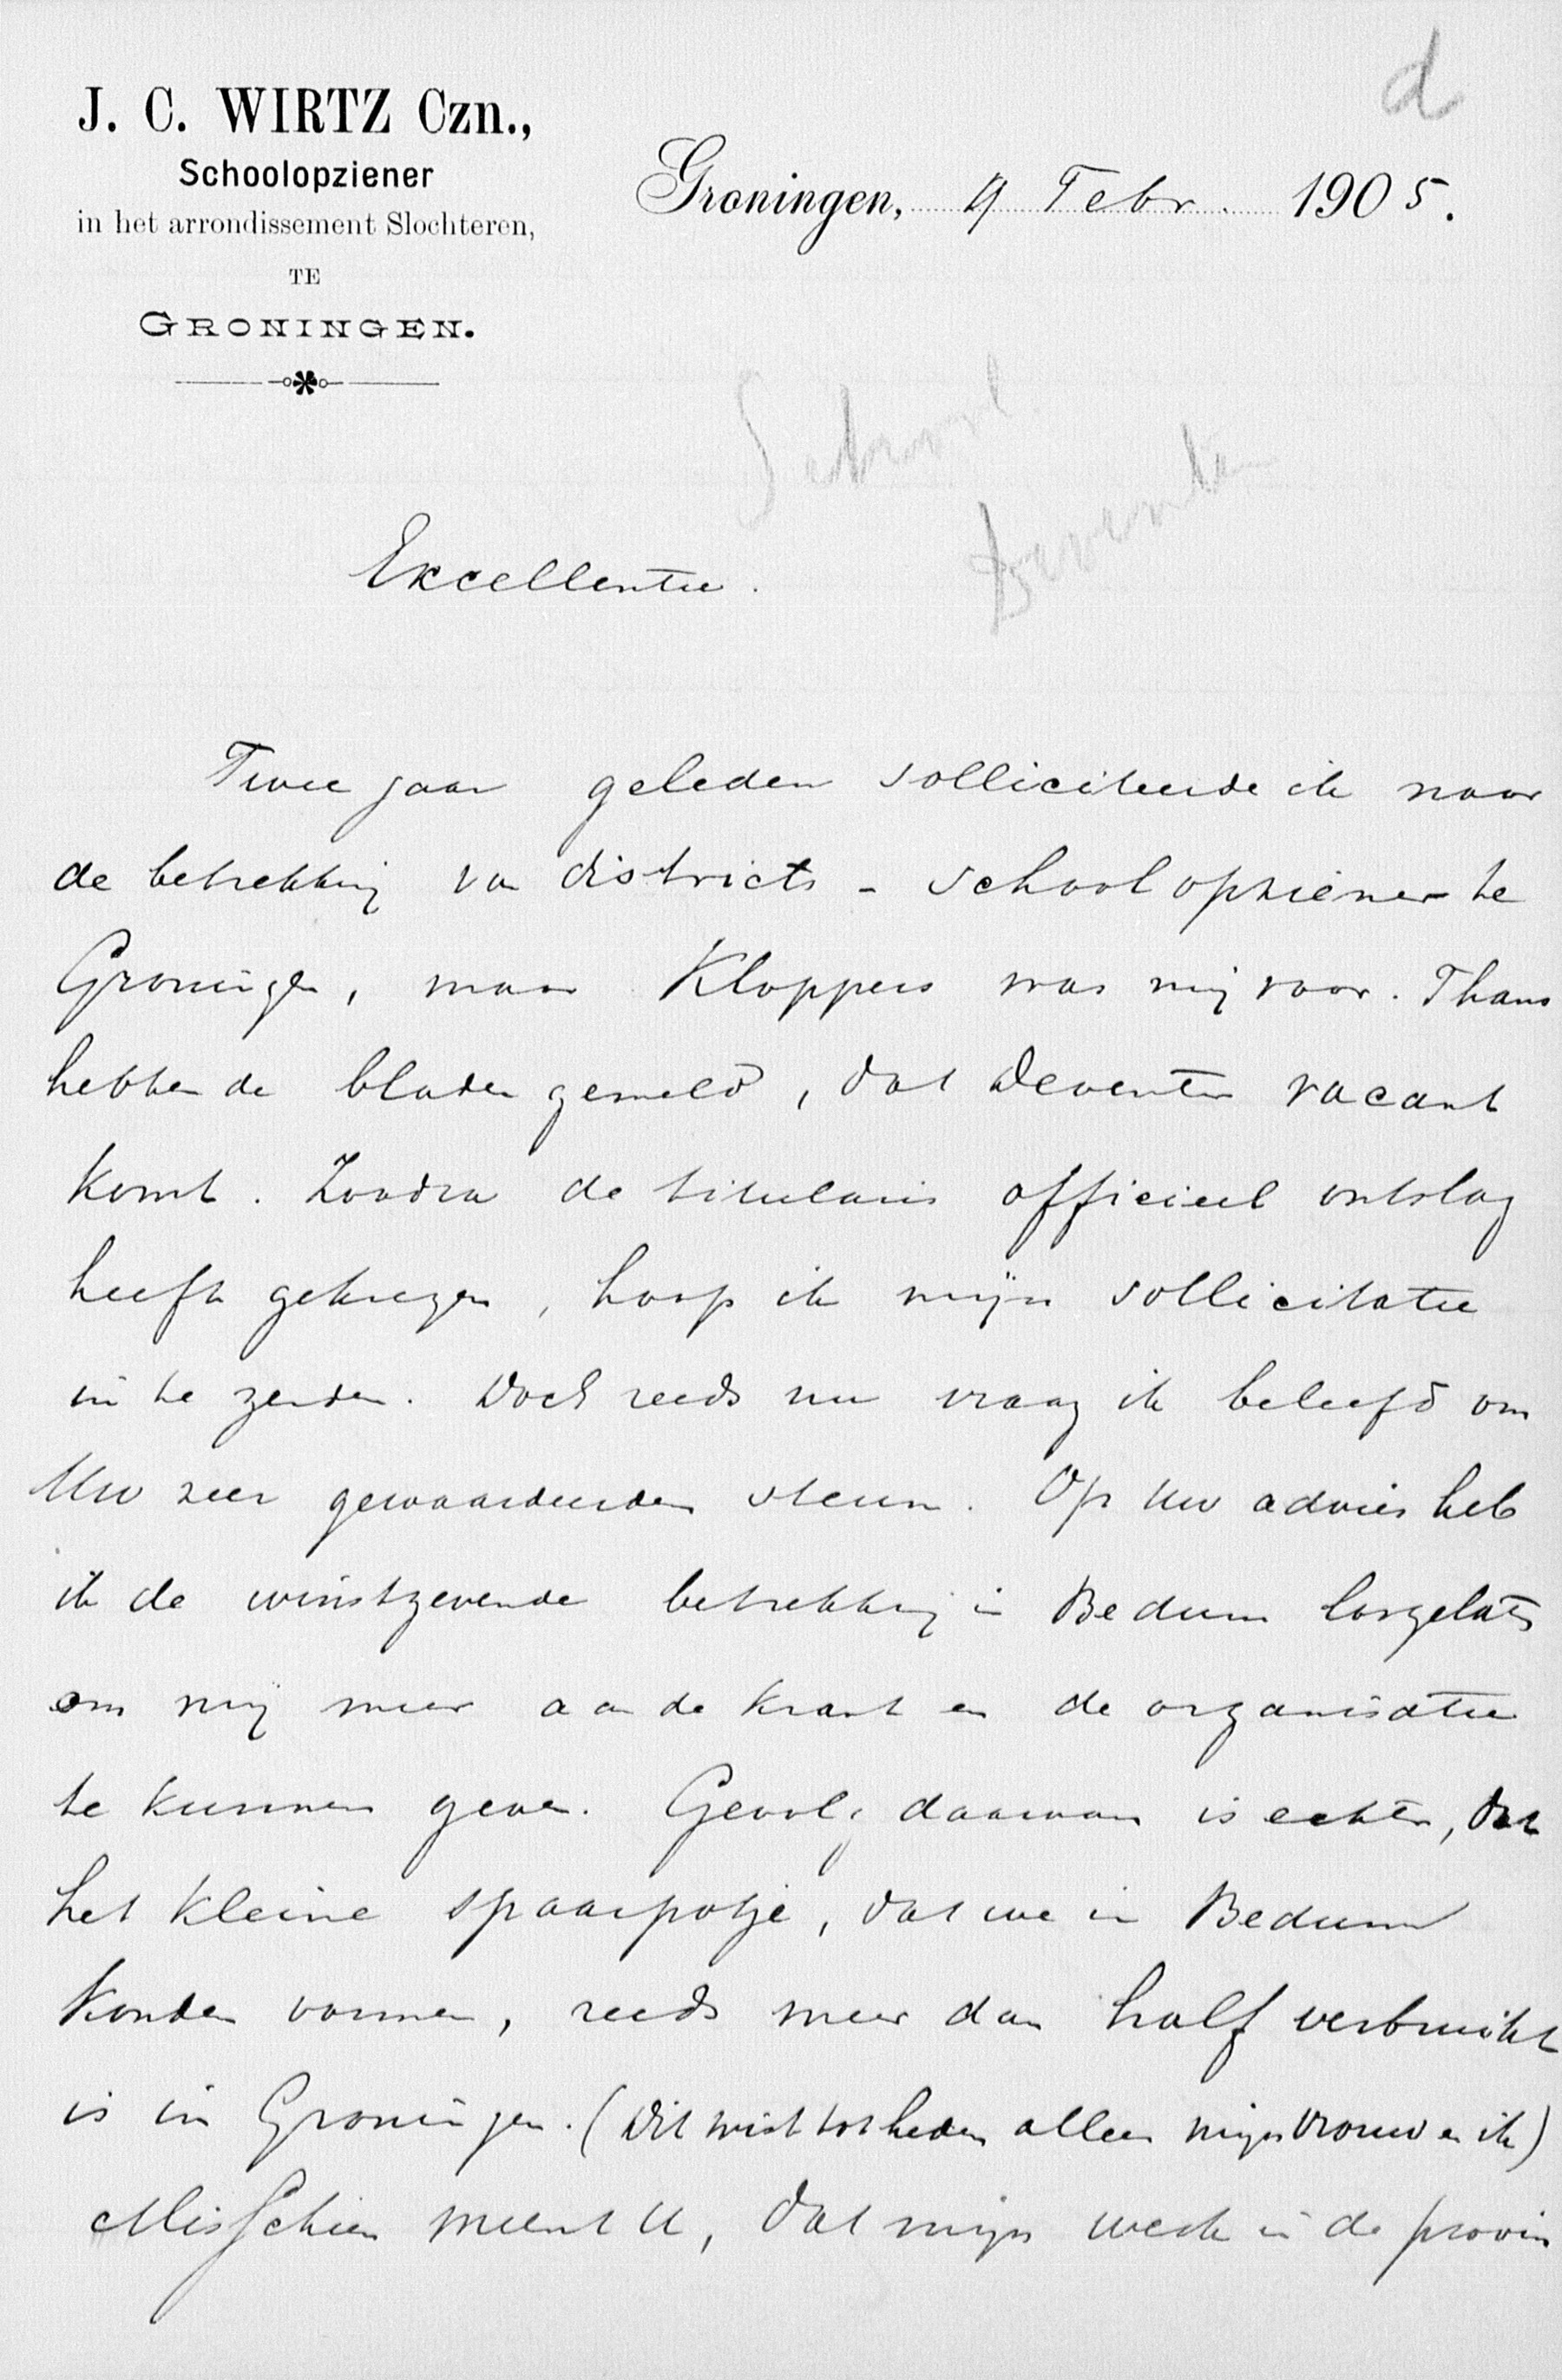 d
J. C. WIRTZ Czn.,
Schoolopziener
in het arrondissement Slochteren,
TE
GRONINGEN.
Groningen, 9 Febr. 1905.
School
Deventer
Excellentie.
Twee jaar geleden solliciteerde ik naar
de betrekking van districts-schoolopziener te
Groningen, maar Kloppers was mij voor. Thans
hebben de bladen gemeld, dat Deventer vacant
komt. Zoodra de titularis officieel ontslag
heeft gekregen, hoop ik mijn sollicitatie
in te zenden. Doch reeds nu vraag ik beleefd om
Uw zeer gewaardeerden steun. Op Uw advies heb
ik de winstgevende betrekking in Bedum losgelaten
om mij meer aan de krant en de organisatie
te kunnen geven. Gevolg daarvan is echter, dat
het kleine spaarpotje, dat we in Bedum
konden vormen, reeds meer dan half verbruikt
is in Groningen. (Dit wist tot heden alleen mijn vrouw en ik)
Misschien meent U, dat mijn werk in de provin